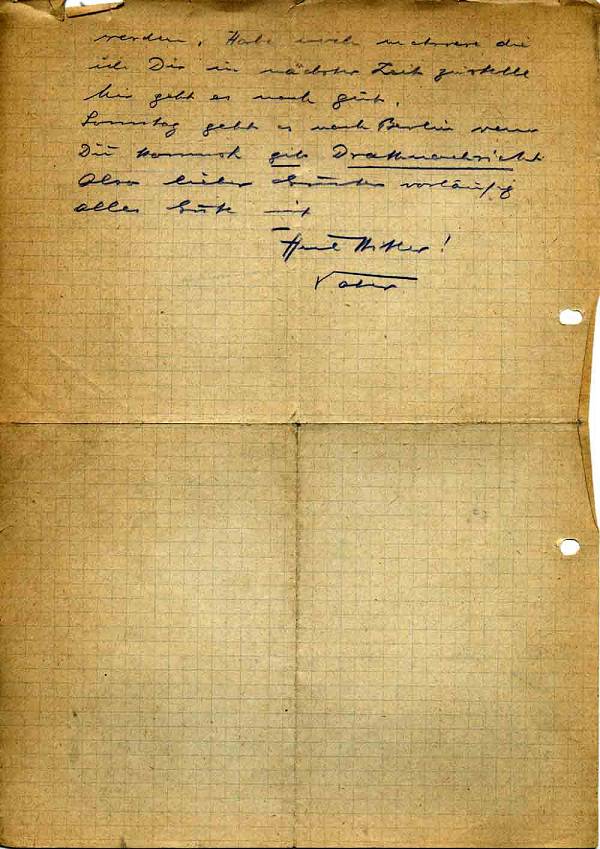 werden. Habe noch mehrere die
ich Dir in nächster Zeit zustelle
hier geht es noch gut.
Sonntag geht es nach Berlin wenn
Du kommst gib Drahtnachricht
Also lieber vorläufig
alles Gute mit
Heil Hitler!
Vater